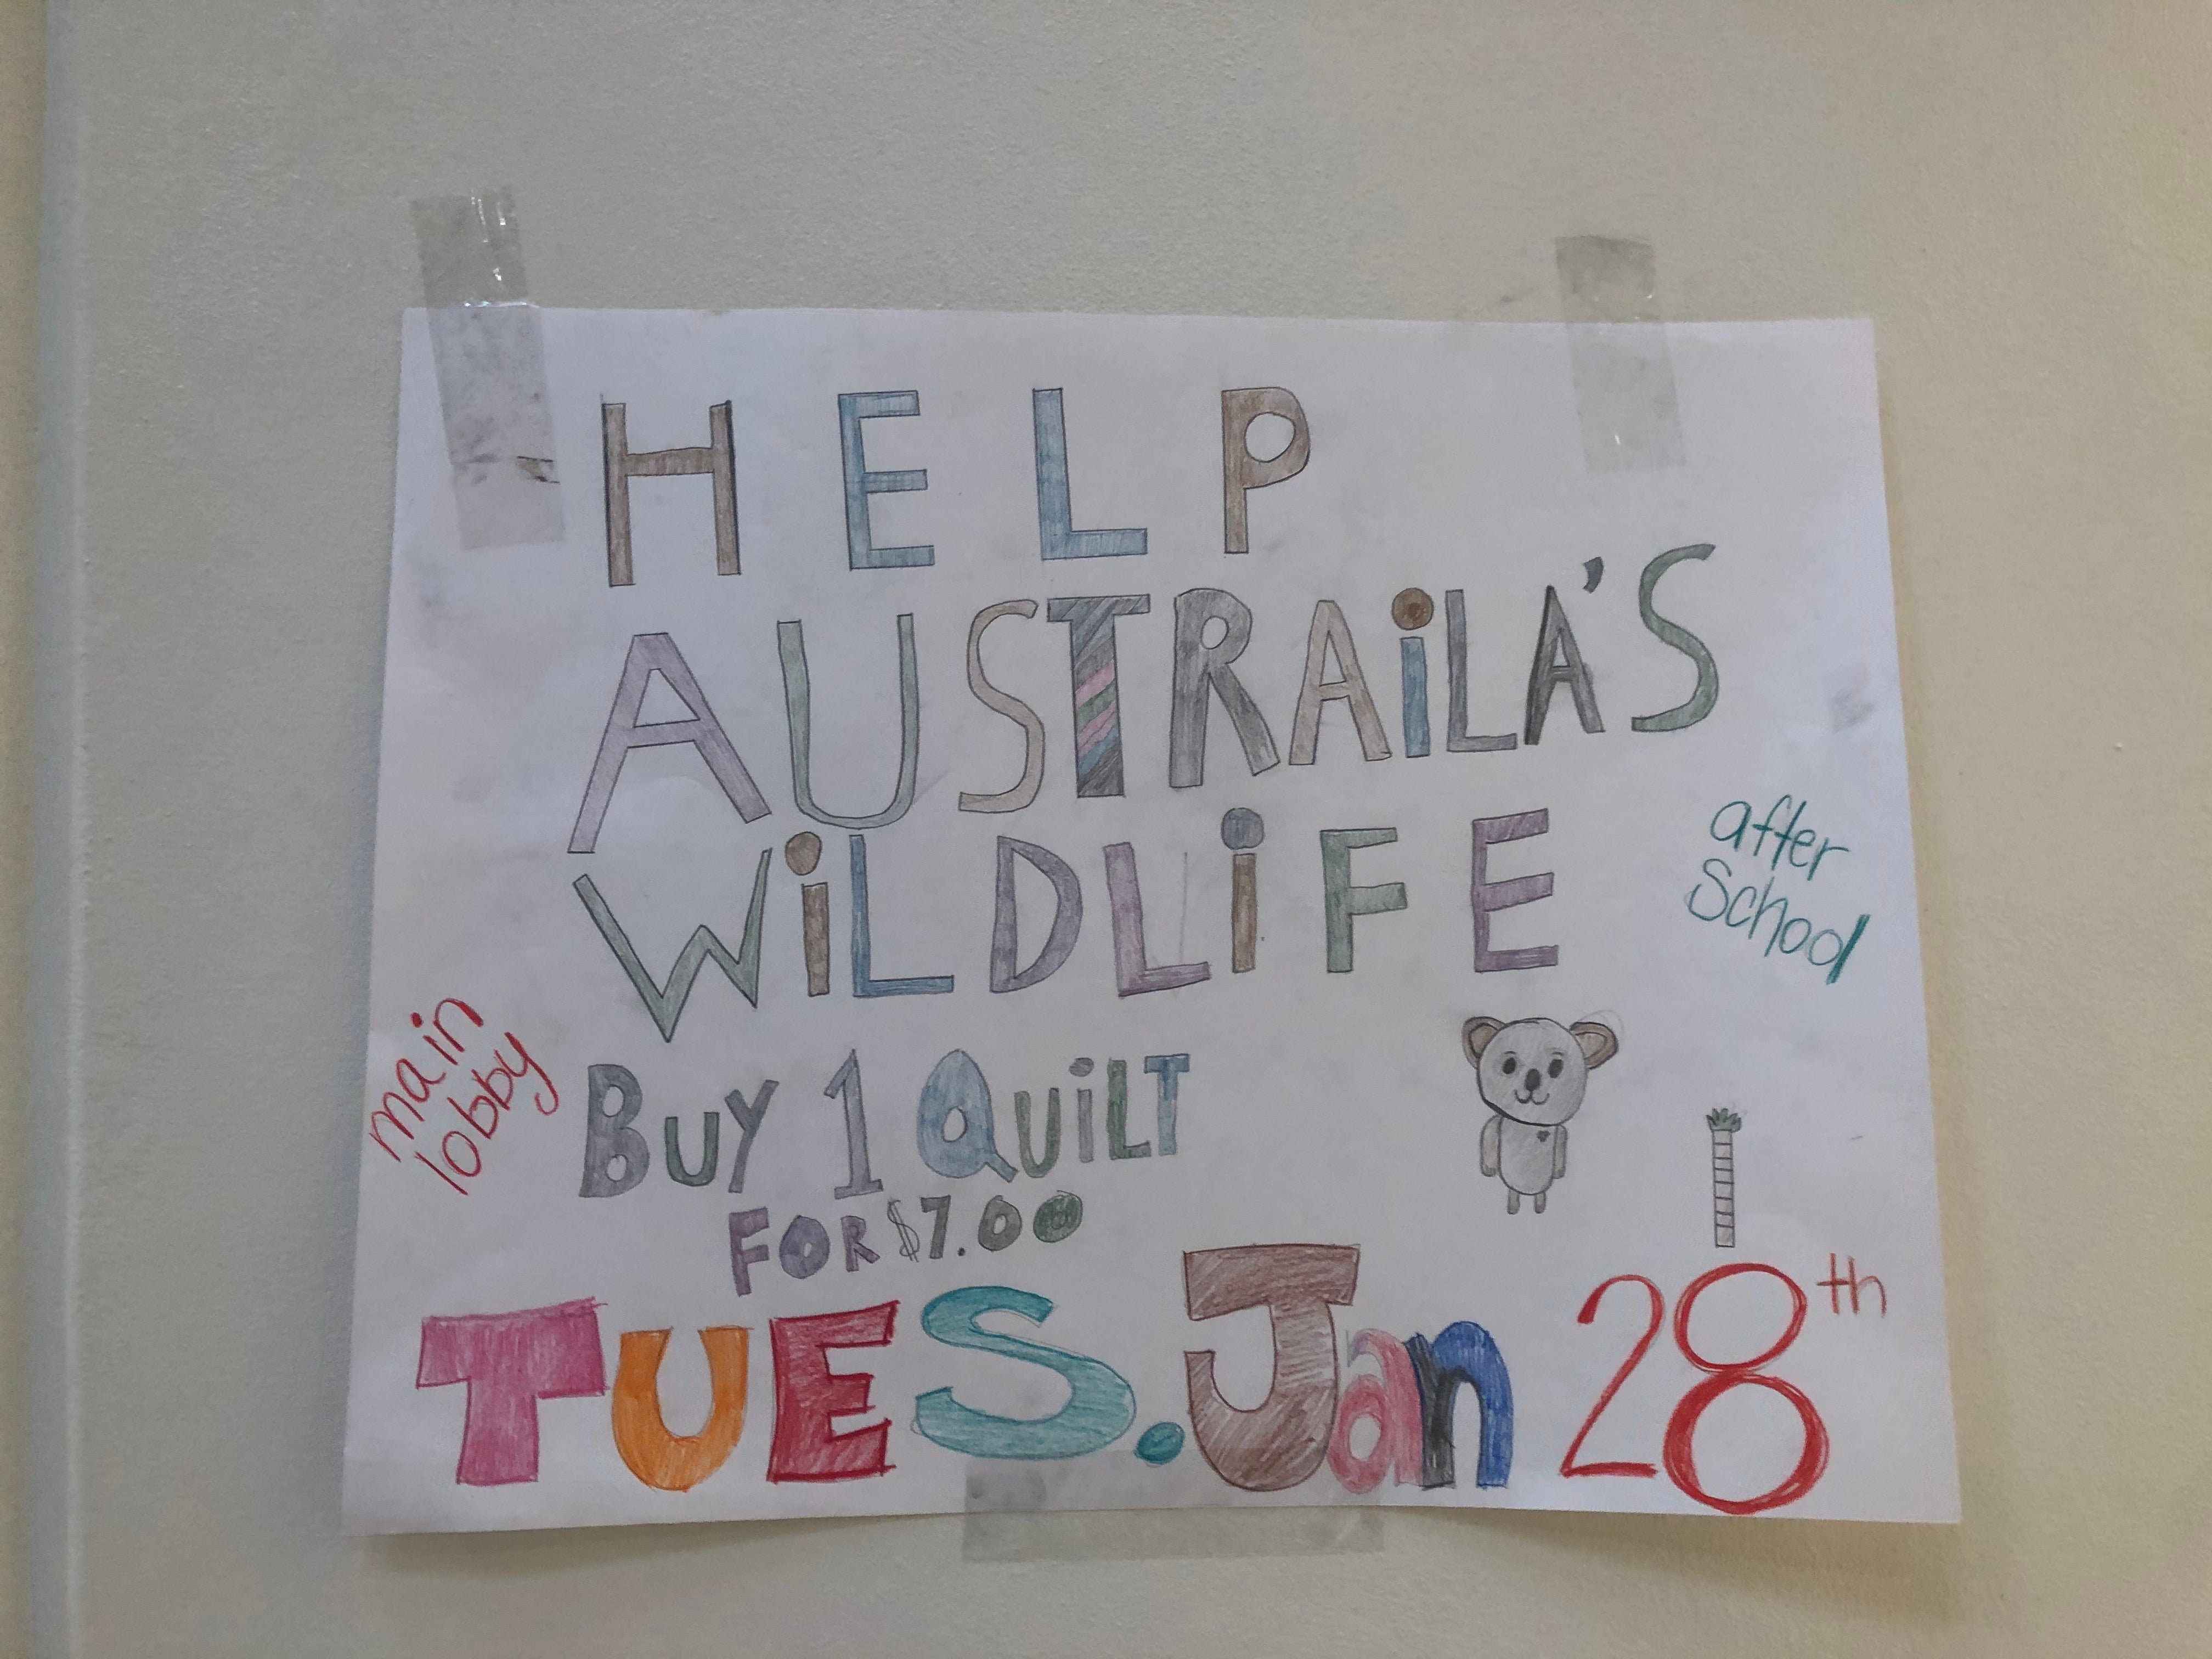 HELP
AUSTRAiLA'S
WiLDLiFE
after
School
main
lobby
BUY 1 QUiLT
FOR $7.00
TUES. Jan 28th